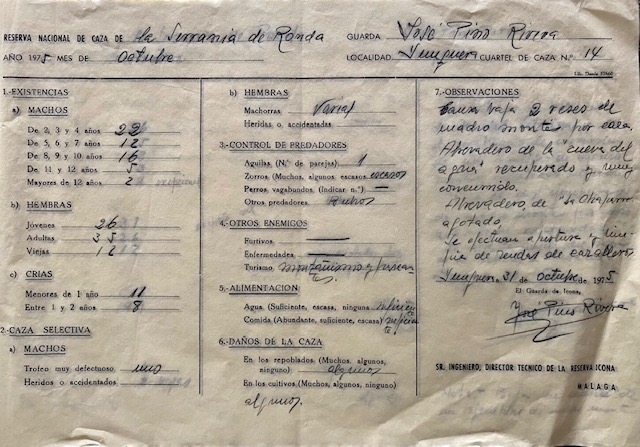 RESERVA NACIONAL DE CAZA DE la Serrania de Ronda
GUARDA José Pino Rivera
AÑO 1975 MES DE Octubre
LOCALIDAD Yunquera CUARTEL DE CAZA N.º 14
1.-EXISTENCIAS
a) MACHOS
De 2, 3 y 4 años 22
De 5, 6 y 7 años 12
De 8, 9 y 10 años 16
De 11 y 12 años 5
Mayores de 12 años 2
b) HEMBRAS
Jóvenes 26
Adultas 35
Viejas 12
c) CRIAS
Menores de 1 año 11
Entre 1 y 2 años 8
2.-CAZA SELECTIVA
a) MACHOS
Trofeo muy defectuoso uno
Heridos o accidentados
b) HEMBRAS
Machorras Varias
Heridas o accidentadas
3.-CONTROL DE PREDADORES
Aguilas (N.º de parejas) 1
Zorros (Muchos, algunos escasos) escasos
Perros vagabundos (Indicar n.º) —
Otros predadores
4.-OTROS ENEMIGOS
Furtivos —
Enfermedades —
Turismo montañismo y
5.-ALIMENTACION
Agua (Suficiente, escasa, ninguna) suficiente
Comida (Abundante, suficiente, escasa) suficiente
6.-DAÑOS DE LA CAZA
En los repoblados (Muchos, algunos, ninguno) algunos
En los cultivos (Muchos, algunos, ninguno)
algunos.
7.-OBSERVACIONES
Causa baja 2 reses del
cuadro montés por caza
Abrevadero de la "cueva del
agua" recuperado y muy
concurrido.
Abrevadero de
agotado.
Se efectuan apertura y
de sendas de
Yunquera, 31 de octubre de 1975
El Guarda de Icona,
José Pino Rivera
SR. INGENIERO, DIRECTOR TECNICO DE LA RESERVA ICONA
MALAGA